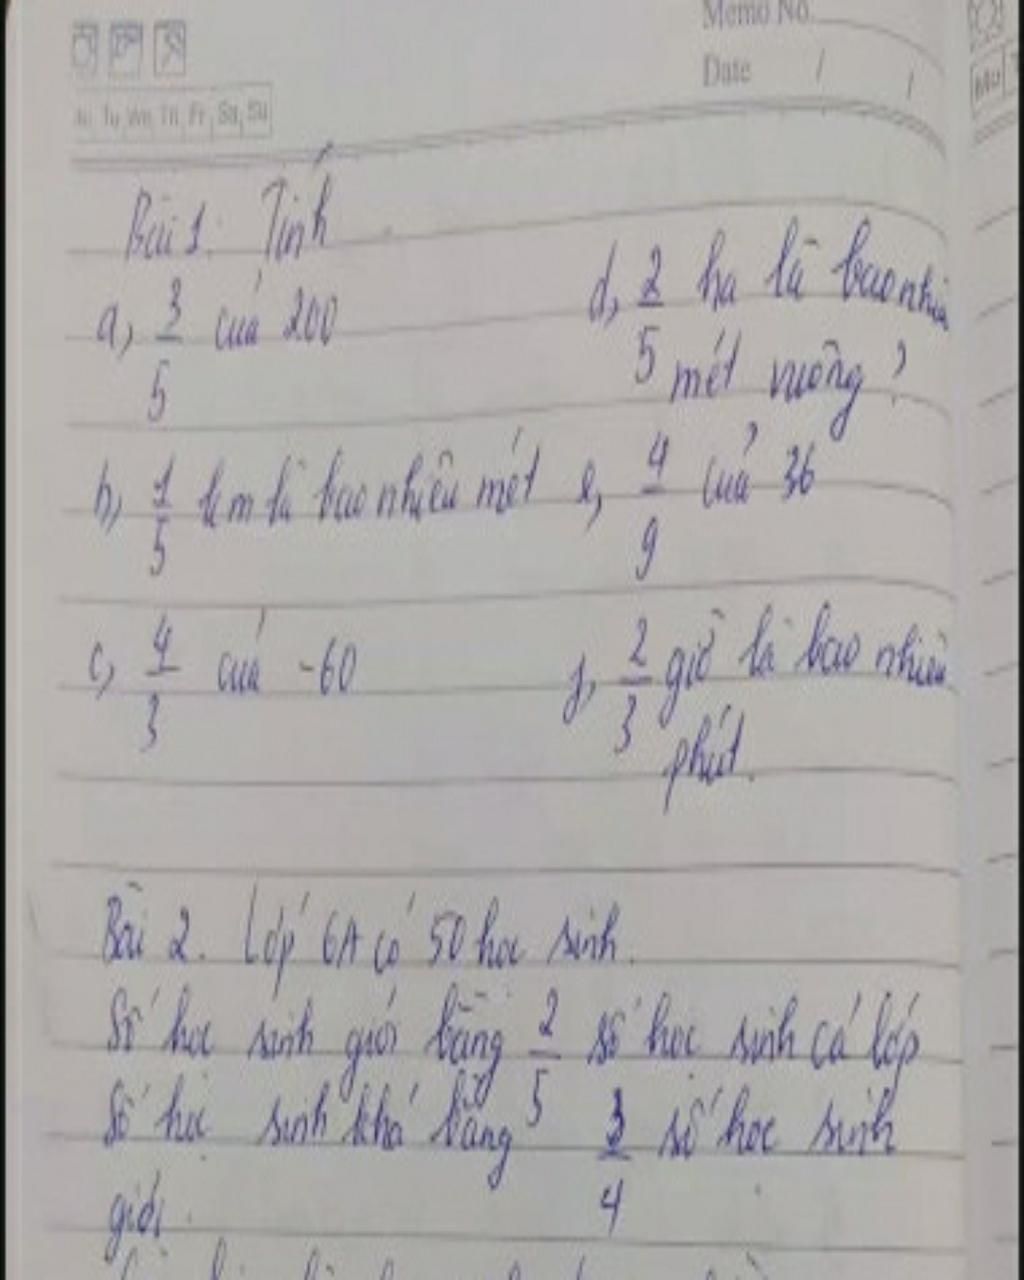 Memo No.
Date / /
Tu We Th Fr Sa Su
Mo
Bài 1. Tính
a, 3/5 của 200
b, 1/5 km là bao nhiêu mét
c, 4/3 của -60
d, 2/5 ha là bao nhiêu
mét vuông?
e, 4/9 của 36
f, 2/3 giờ là bao nhiêu
phút.
Bài 2. Lớp 6A có 50 học sinh.
Số học sinh giỏi bằng 2/5 số học sinh cả lớp
Số học sinh khá bằng 3/4 số học sinh
giỏi.